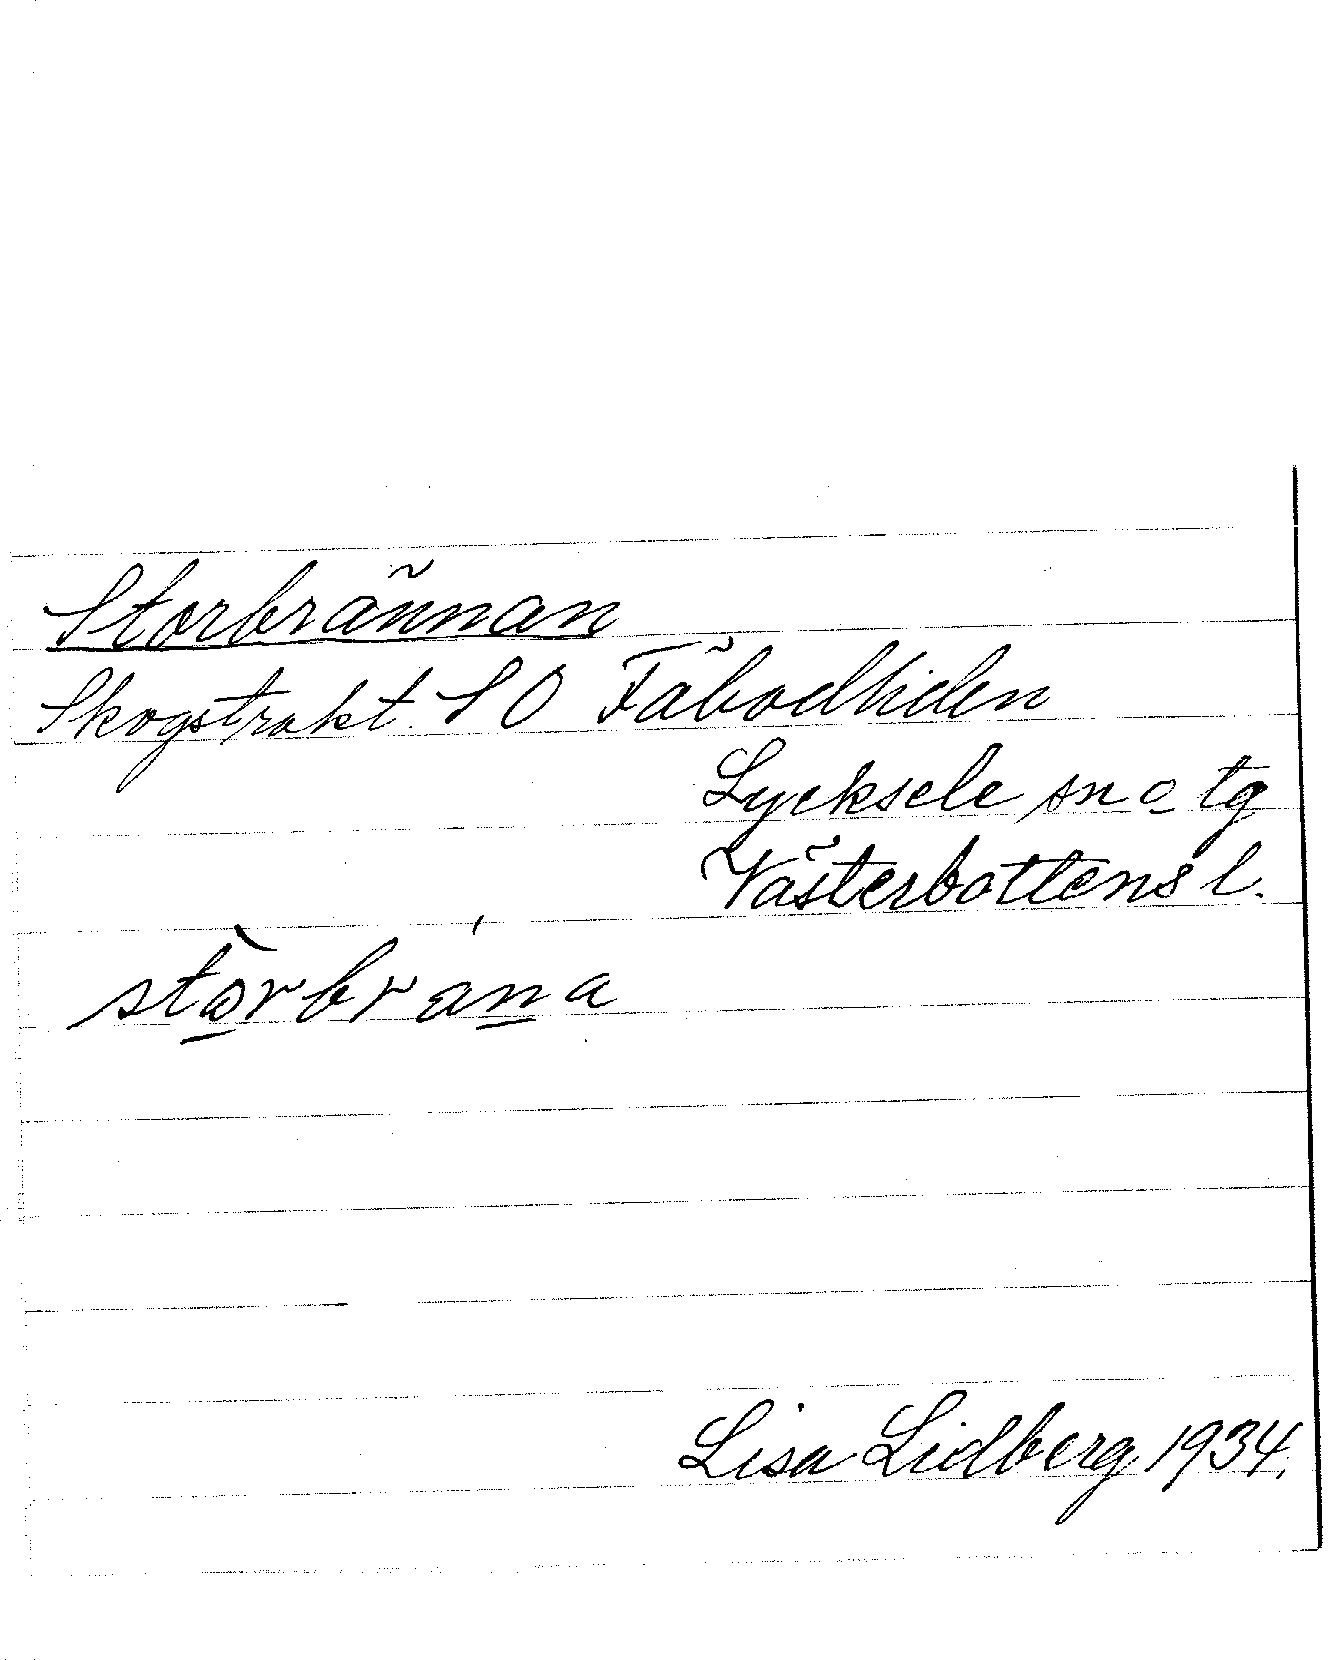 Storbrännan
Skogstrakt SO Fäbodliden
Lycksele sn o tg
Västerbottens l.
stòrbrána
Lisa Lidberg 1934.